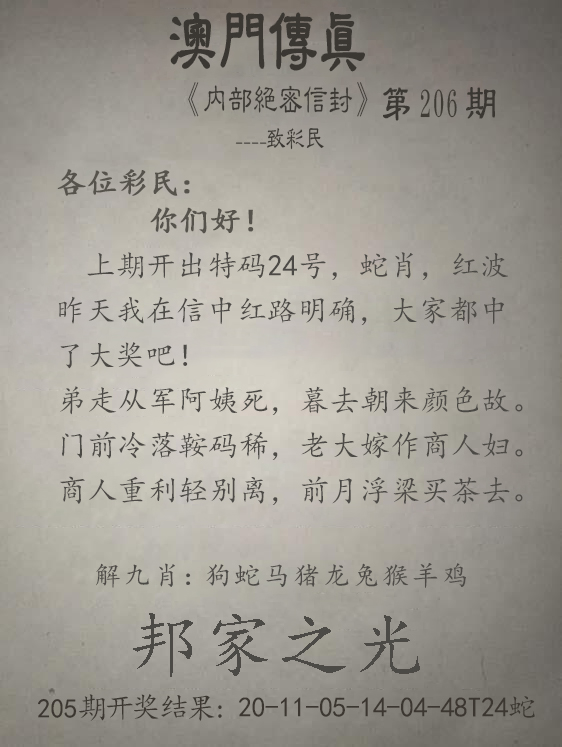 澳門傳眞
《内部絕密信封》第206期
----致彩民
各位彩民：
你们好！
上期开出特码24号，蛇肖，红波
昨天我在信中红路明确，大家都中
了大奖吧！
弟走从军阿姨死，暮去朝来颜色故。
门前冷落鞍码稀，老大嫁作商人妇。
商人重利轻别离，前月浮梁买茶去。
解九肖：狗蛇马猪龙兔猴羊鸡
邦家之光
205期开奖结果：20-11-05-14-04-48T24蛇